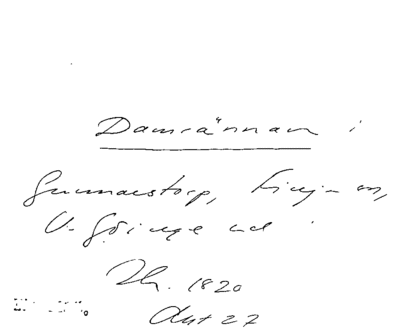 Damrännan i
Gunnarstorp, Finja sn,
V. Göinge hd
Zh. 1820
Ant 27